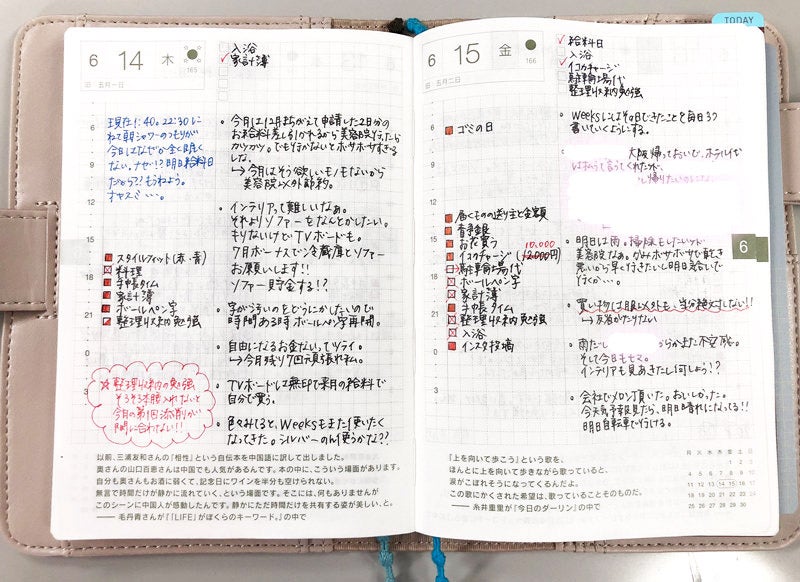 6 14 木
165
旧 五月一日
入浴
家計簿
現在1:40。22:30に
ねて朝シャワーのつもりが
今日はなぜか全く眠く
ない。ナゼ!?明日給料日
だから??もうねよう。
オヤスミ…。
6
9
12
15
18
21
0
3
スタイルフィット(赤・青)
料理
手帳タイム
家計簿
ボールペン字
整理収納勉強
☆整理収納の勉強
そろそろ本腰入れないと
今月の第1回添削が
間に合わない!!
・今月は12月まちがえて申請した2日分の
お給料差し引かれるから美容院行ったら
カツカツ。でも行かないとボサボサすぎる
しな。
→今月はそう欲しいモノもないから
美容院以外節約。
・インテリアって難しいなぁ。
それよりソファーをなんとかしたい。
キリないけどTVボードも。
7月ボーナスで冷蔵庫とソファー
お願いします!!
ソファー貯金する!?
・字が汚いのをどうにかしたいので
時間ある時ボールペン字再開。
・自由になるお金ないってツライ。
→今月残り7回頑張れ私。
・TVボードは無印で来月の給料で
自分で買う。
・色々みてると、Weeksもまた使いたく
なってきた。シルバーのん使うかな??
以前、三浦友和さんの『相性』という自伝本を中国語に訳して出しました。
奥さんの山口百恵さんは中国でも人気があるんです。本の中に、こういう場面があります。
自分も奥さんもお酒に弱くて、記念日にワインを半分も空けられない。
無言で時間だけが静かに流れていく、という場面です。そこには、何もありませんが
このシーンに中国人が感動したんです。静かにただ時間を共有する姿が美しい、と。
――毛丹青さんが『「LIFE」がぼくらのキーワード。』の中で
TODAY
6 15 金
166
旧 五月二日
給料日
入浴
イコカチャージ
駐車輪場代
整理収納勉強
6
9
12
15
18
21
0
3
ゴミの日
届くもの送り主と金額
貯金額
お花買う
10,000
イコカチャージ(12,000円)
駐輪場代
ボールペン字
家計簿
手帳タイム
整理収納勉強
入浴
インスタ投稿
・Weeksにはその日できたことを毎日3つ
書いていくようにする。
大阪帰っておいで、ホテル代
は払うって言ってくれたけど、
し帰りたいかな
・明日は雨。掃除もしたいけど
美容院なぁ。
行くか…。
・買い物は服以外も、当分絶対しない!!
→友裕がたりない
・雨だし
からか不安感。
そして今日もヒマ。
インテリアも見あきたし何しよう!?
・会社でメロン頂いた。おいしかった。
今天気予報見たら、明日晴れになってる!!
明日自転車で行ける。
6
月 火 水 木 金 土 日
1 2 3
4 5 6 7 8 9 10
11 12 13 14 15 16 17
18 19 20 21 22 23 24
25 26 27 28 29 30
「上を向いて歩こう」という歌を、
ほんとに上を向いて歩きながら歌っていると、
涙がこぼれそうになってくるんだよ。
この歌にかくされた希望は、歌っていることそのものだ。
――糸井重里が「今日のダーリン」の中で